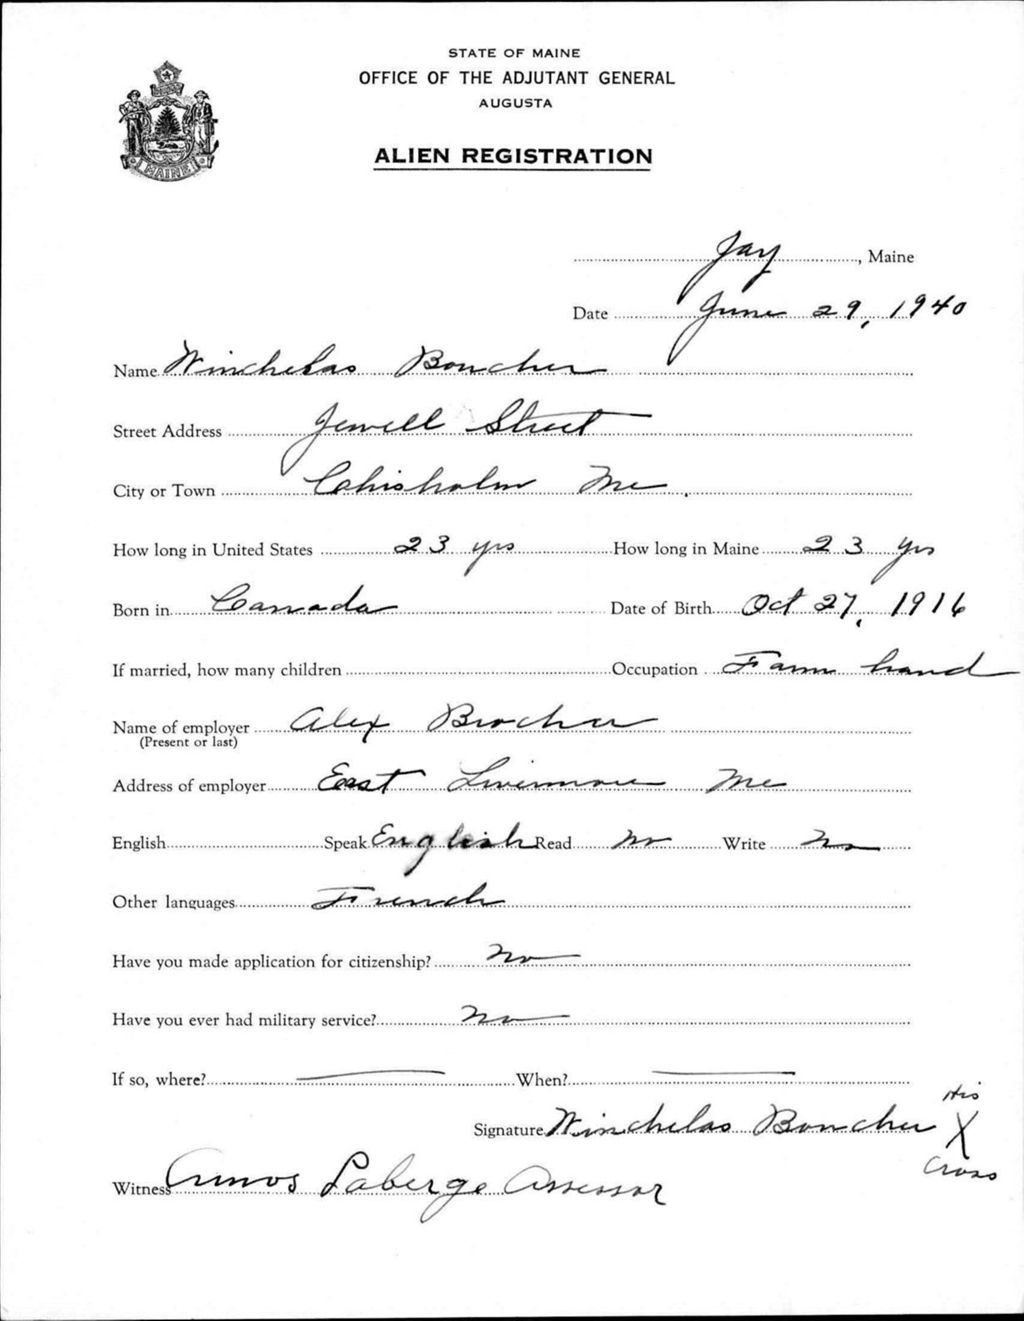 STATE OF MAINE
OFFICE OF THE ADJUTANT GENERAL
AUGUSTA
ALIEN REGISTRATION
MAINE
Jay, Maine
Date June 29, 1940
Name Winchelas Boucher
Street Address Jewell Street
City or Town Chisholm Me.
How long in United States 23 yrs How long in Maine 23 yrs
Born in Canada Date of Birth Oct 27, 1916
If married, how many children Occupation Farm hand
Name of employer Alex Brochu
(Present or last)
Address of employer East Livermore Me
English Speak English Read No Write No
Other languages French
Have you made application for citizenship? No
Have you ever had military service? No
If so, where? — When? —
His
Signature Winchelas Boucher X
Cross
Witness Amos Laberge Assessor